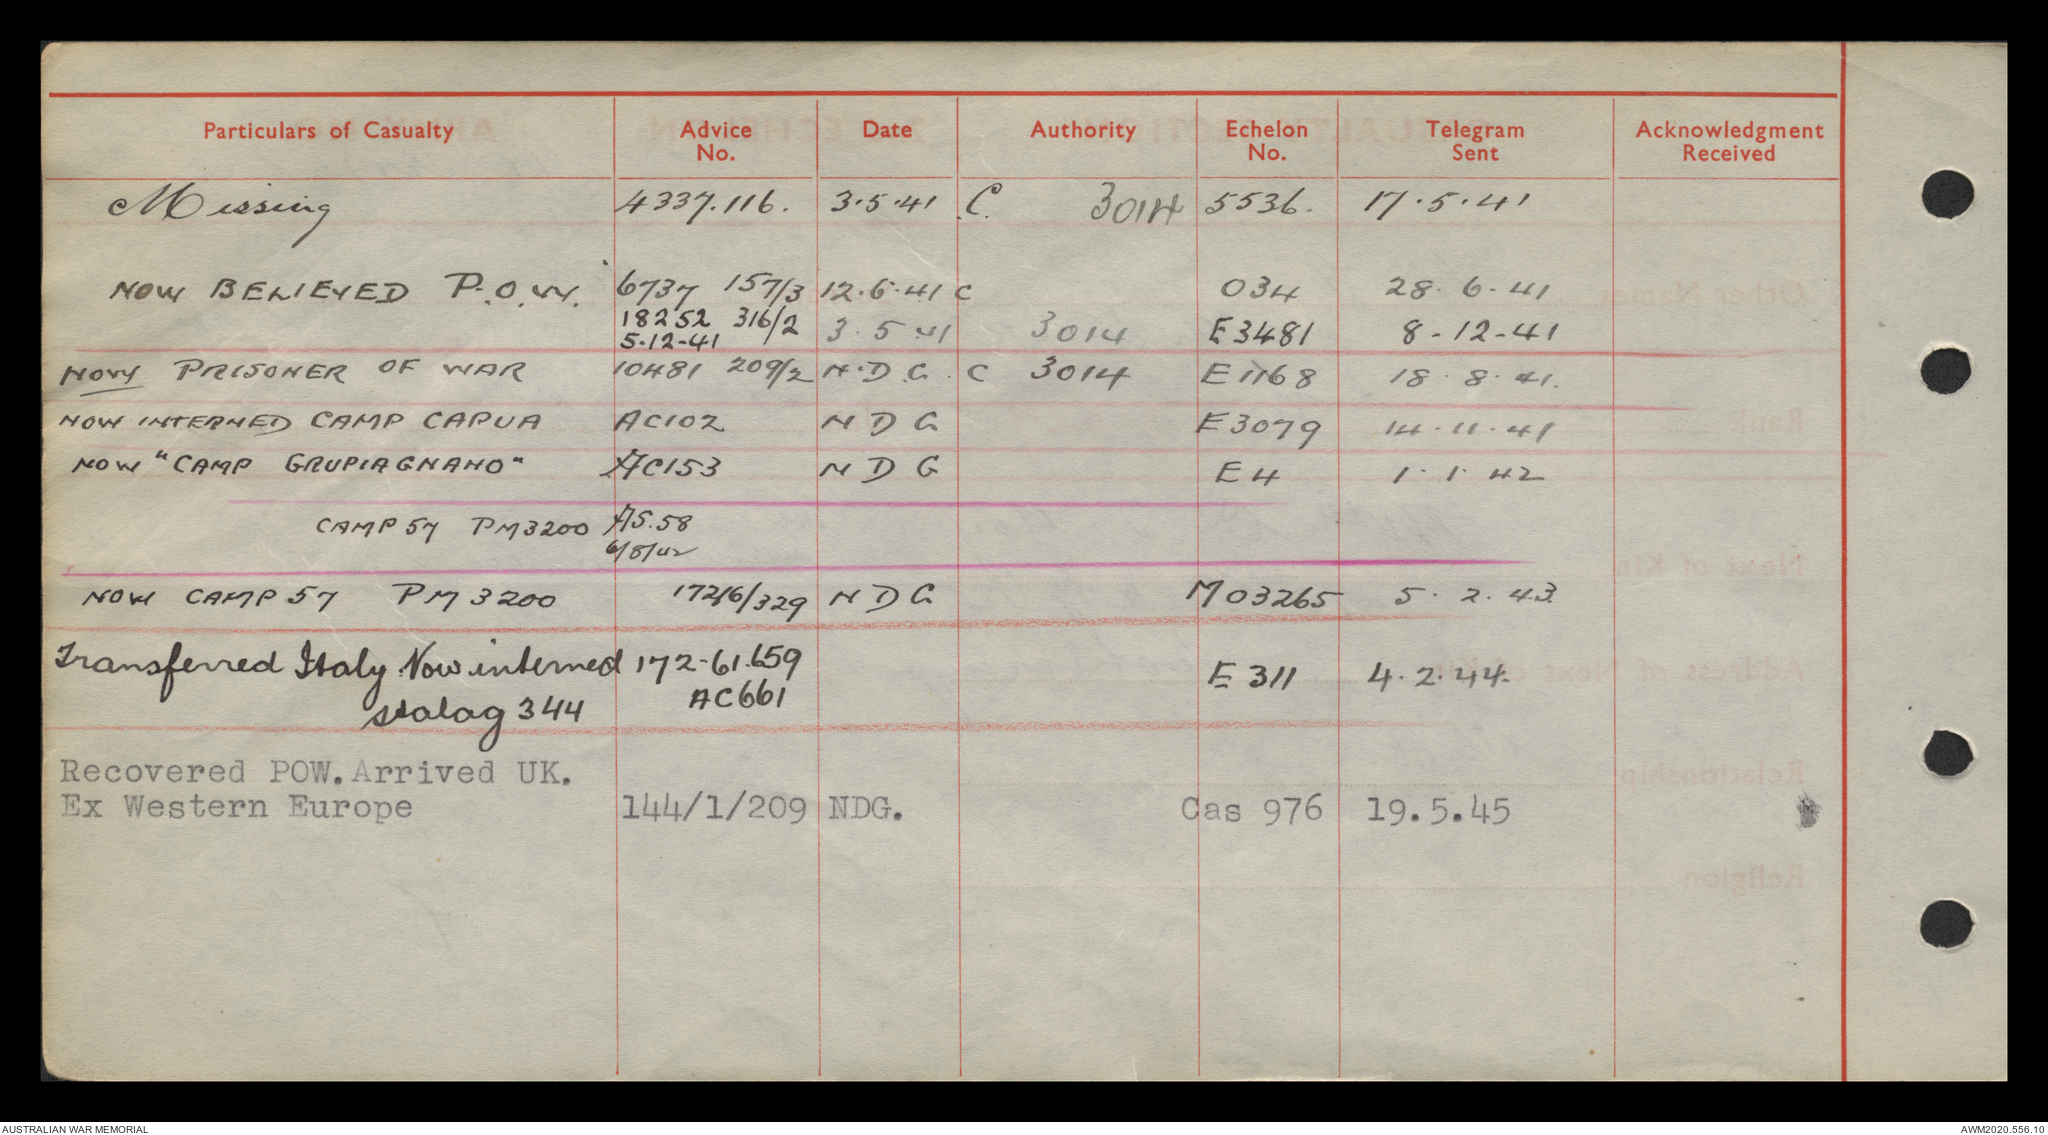 Particulars of Casualty Advice No. Date Authority Echelon No. Telegram Sent Acknowledgment Received
Missing 4337.116. 3.5.41 C. 3014 5536. 17.5.41
NOW BELIEVED P.O.W. 6737 157/3 12.6.41 C 034 28.6.41
18252 316/2 3.5.41 3014 E3481 8-12-41
5.12-41
NOW PRISONER OF WAR 10481 209/2 N.D.G. C 3014 E1168 18.8.41.
NOW INTERNED CAMP CAPUA AC102 N D G E3079 14.11.41
NOW "CAMP GRUPIAGNANO" AC153 N D G E4 1.1.42
CAMP 57 PM3200 AS.58
6/8/42
NOW CAMP 57 PM 3200 172/6/329 N D G M03265 5.2.43
Transferred Italy Now interned 172-61.659 E 311 4.2.44.
stalag 344 AC661
Recovered POW. Arrived UK.
Ex Western Europe 144/1/209 NDG. Cas 976 19.5.45
AUSTRALIAN WAR MEMORIAL AWM2020.556.10